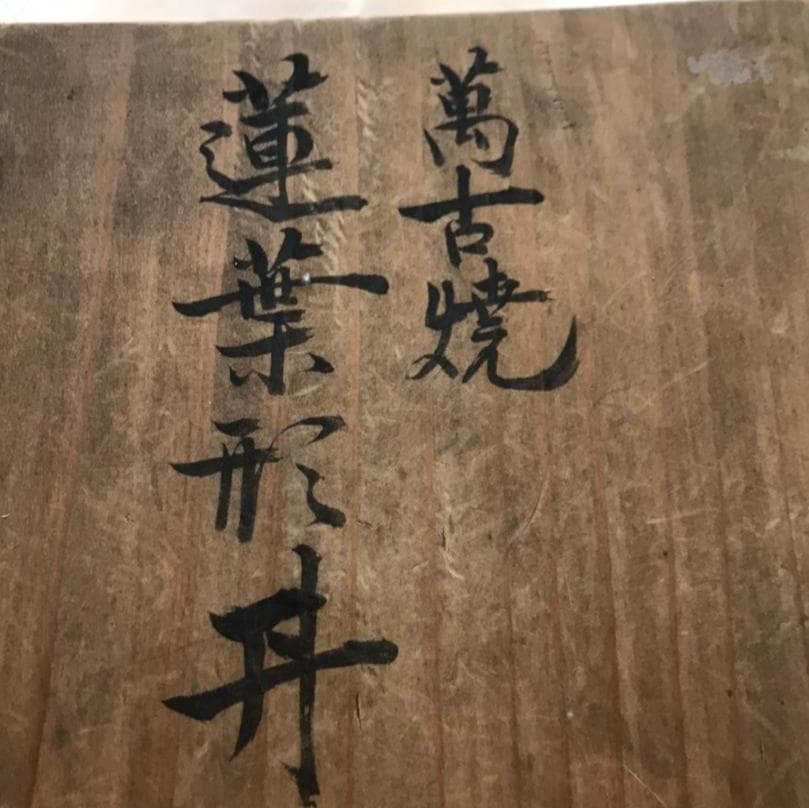 萬古燒
蓮葉形丼